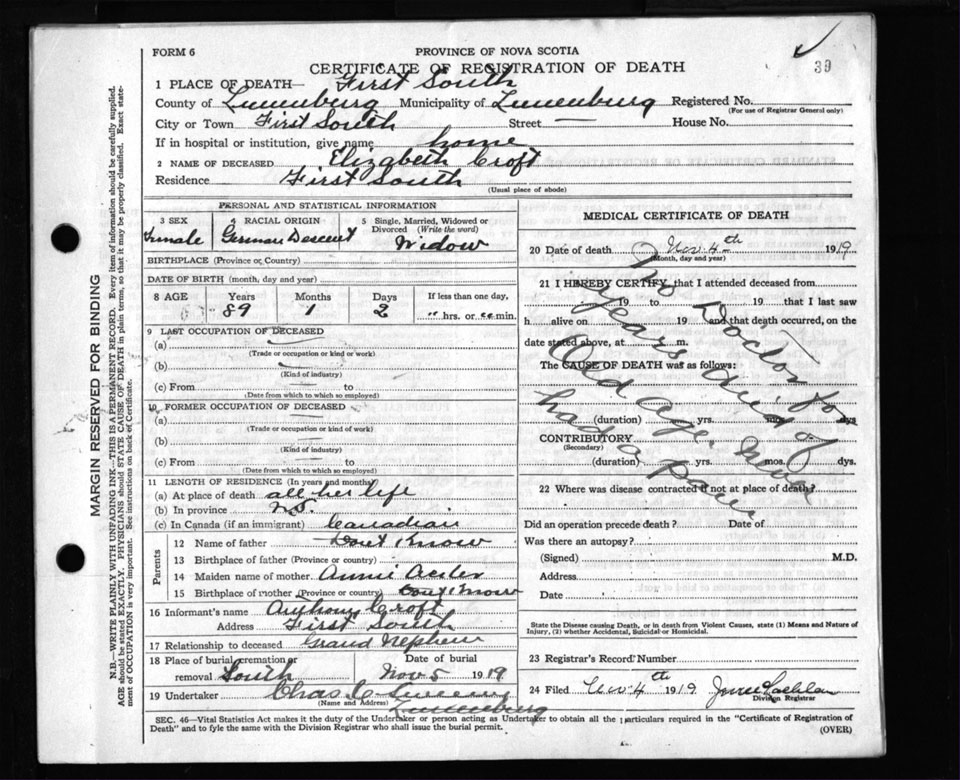 39
FORM 6
PROVINCE OF NOVA SCOTIA
CERTIFICATE OF REGISTRATION OF DEATH
1 PLACE OF DEATH— First South
County of Lunenburg Municipality of Lunenburg Registered No.
(For use of Registrar General only)
City or Town First South Street — House No.
If in hospital or institution, give name home
2 NAME OF DECEASED Elizabeth Croft
Residence First South
(Usual place of abode)
PERSONAL AND STATISTICAL INFORMATION
3 SEX 4 RACIAL ORIGIN 5 Single, Married, Widowed or Divorced (Write the word)
Female German Descent Widow
BIRTHPLACE (Province or Country)
DATE OF BIRTH (month, day and year)
8 AGE Years Months Days If less than one day,
89 1 2 hrs. or min.
9 LAST OCCUPATION OF DECEASED
(a)
(Trade or occupation or kind or work)
(b)
(Kind of industry)
(c) From to
(Date from which to which so employed)
10 FORMER OCCUPATION OF DECEASED
(a)
(Trade or occupation or kind of work)
(b)
(Kind of industry)
(c) From to
(Date from which to which so employed)
11 LENGTH OF RESIDENCE (In years and months)
(a) At place of death all her life
(b) In province N.S.
(c) In Canada (if an immigrant) Canadian
Parents
12 Name of father Dont Know
13 Birthplace of father (Province or country)
14 Maiden name of mother Annie
15 Birthplace of mother (Province or country) Dont Know
16 Informant's name Anthony Croft
Address First South
17 Relationship to deceased Grand Nephew
18 Place of burial, cremation or removal South Date of burial Nov 5 1919
19 Undertaker Chas
(Name and Address) Lunenburg
MEDICAL CERTIFICATE OF DEATH
20 Date of death Nov. 4th 1919
(Month, day and year)
21 I HEREBY CERTIFY, that I attended deceased from
19 to 19 that I last saw
h alive on 19 and that death occurred, on the
date stated above, at m.
The CAUSE OF DEATH was as follows:
No Doctor for
years died of
Old Age. Never
had a pain
(duration) yrs. mos. dys
CONTRIBUTORY
(Secondary)
(duration) yrs. mos. dys.
22 Where was disease contracted if not at place of death?
Did an operation precede death? Date of
Was there an autopsy?
(Signed) M.D.
Address
Date
State the Disease causing Death, or in death from Violent Causes, state (1) Means and Nature of
Injury, (2) whether Accidental, Suicidal or Homicidal.
23 Registrar's Record Number
24 Filed Nov. 4th 1919
Division Registrar
SEC. 46—Vital Statistics Act makes it the duty of the Undertaker or person acting as Undertaker to obtain all the particulars required in the "Certificate of Registration of
Death" and to fyle the same with the Division Registrar who shall issue the burial permit.
(OVER)
MARGIN RESERVED FOR BINDING
N.B.—WRITE PLAINLY WITH UNFADING INK—THIS IS A PERMANENT RECORD. Every item of information should be carefully supplied.
AGE should be stated EXACTLY. PHYSICIANS should STATE CAUSE OF DEATH in plain terms, so that it may be properly classified. Exact statement
of OCCUPATION is very important. See instructions on back of Certificate.